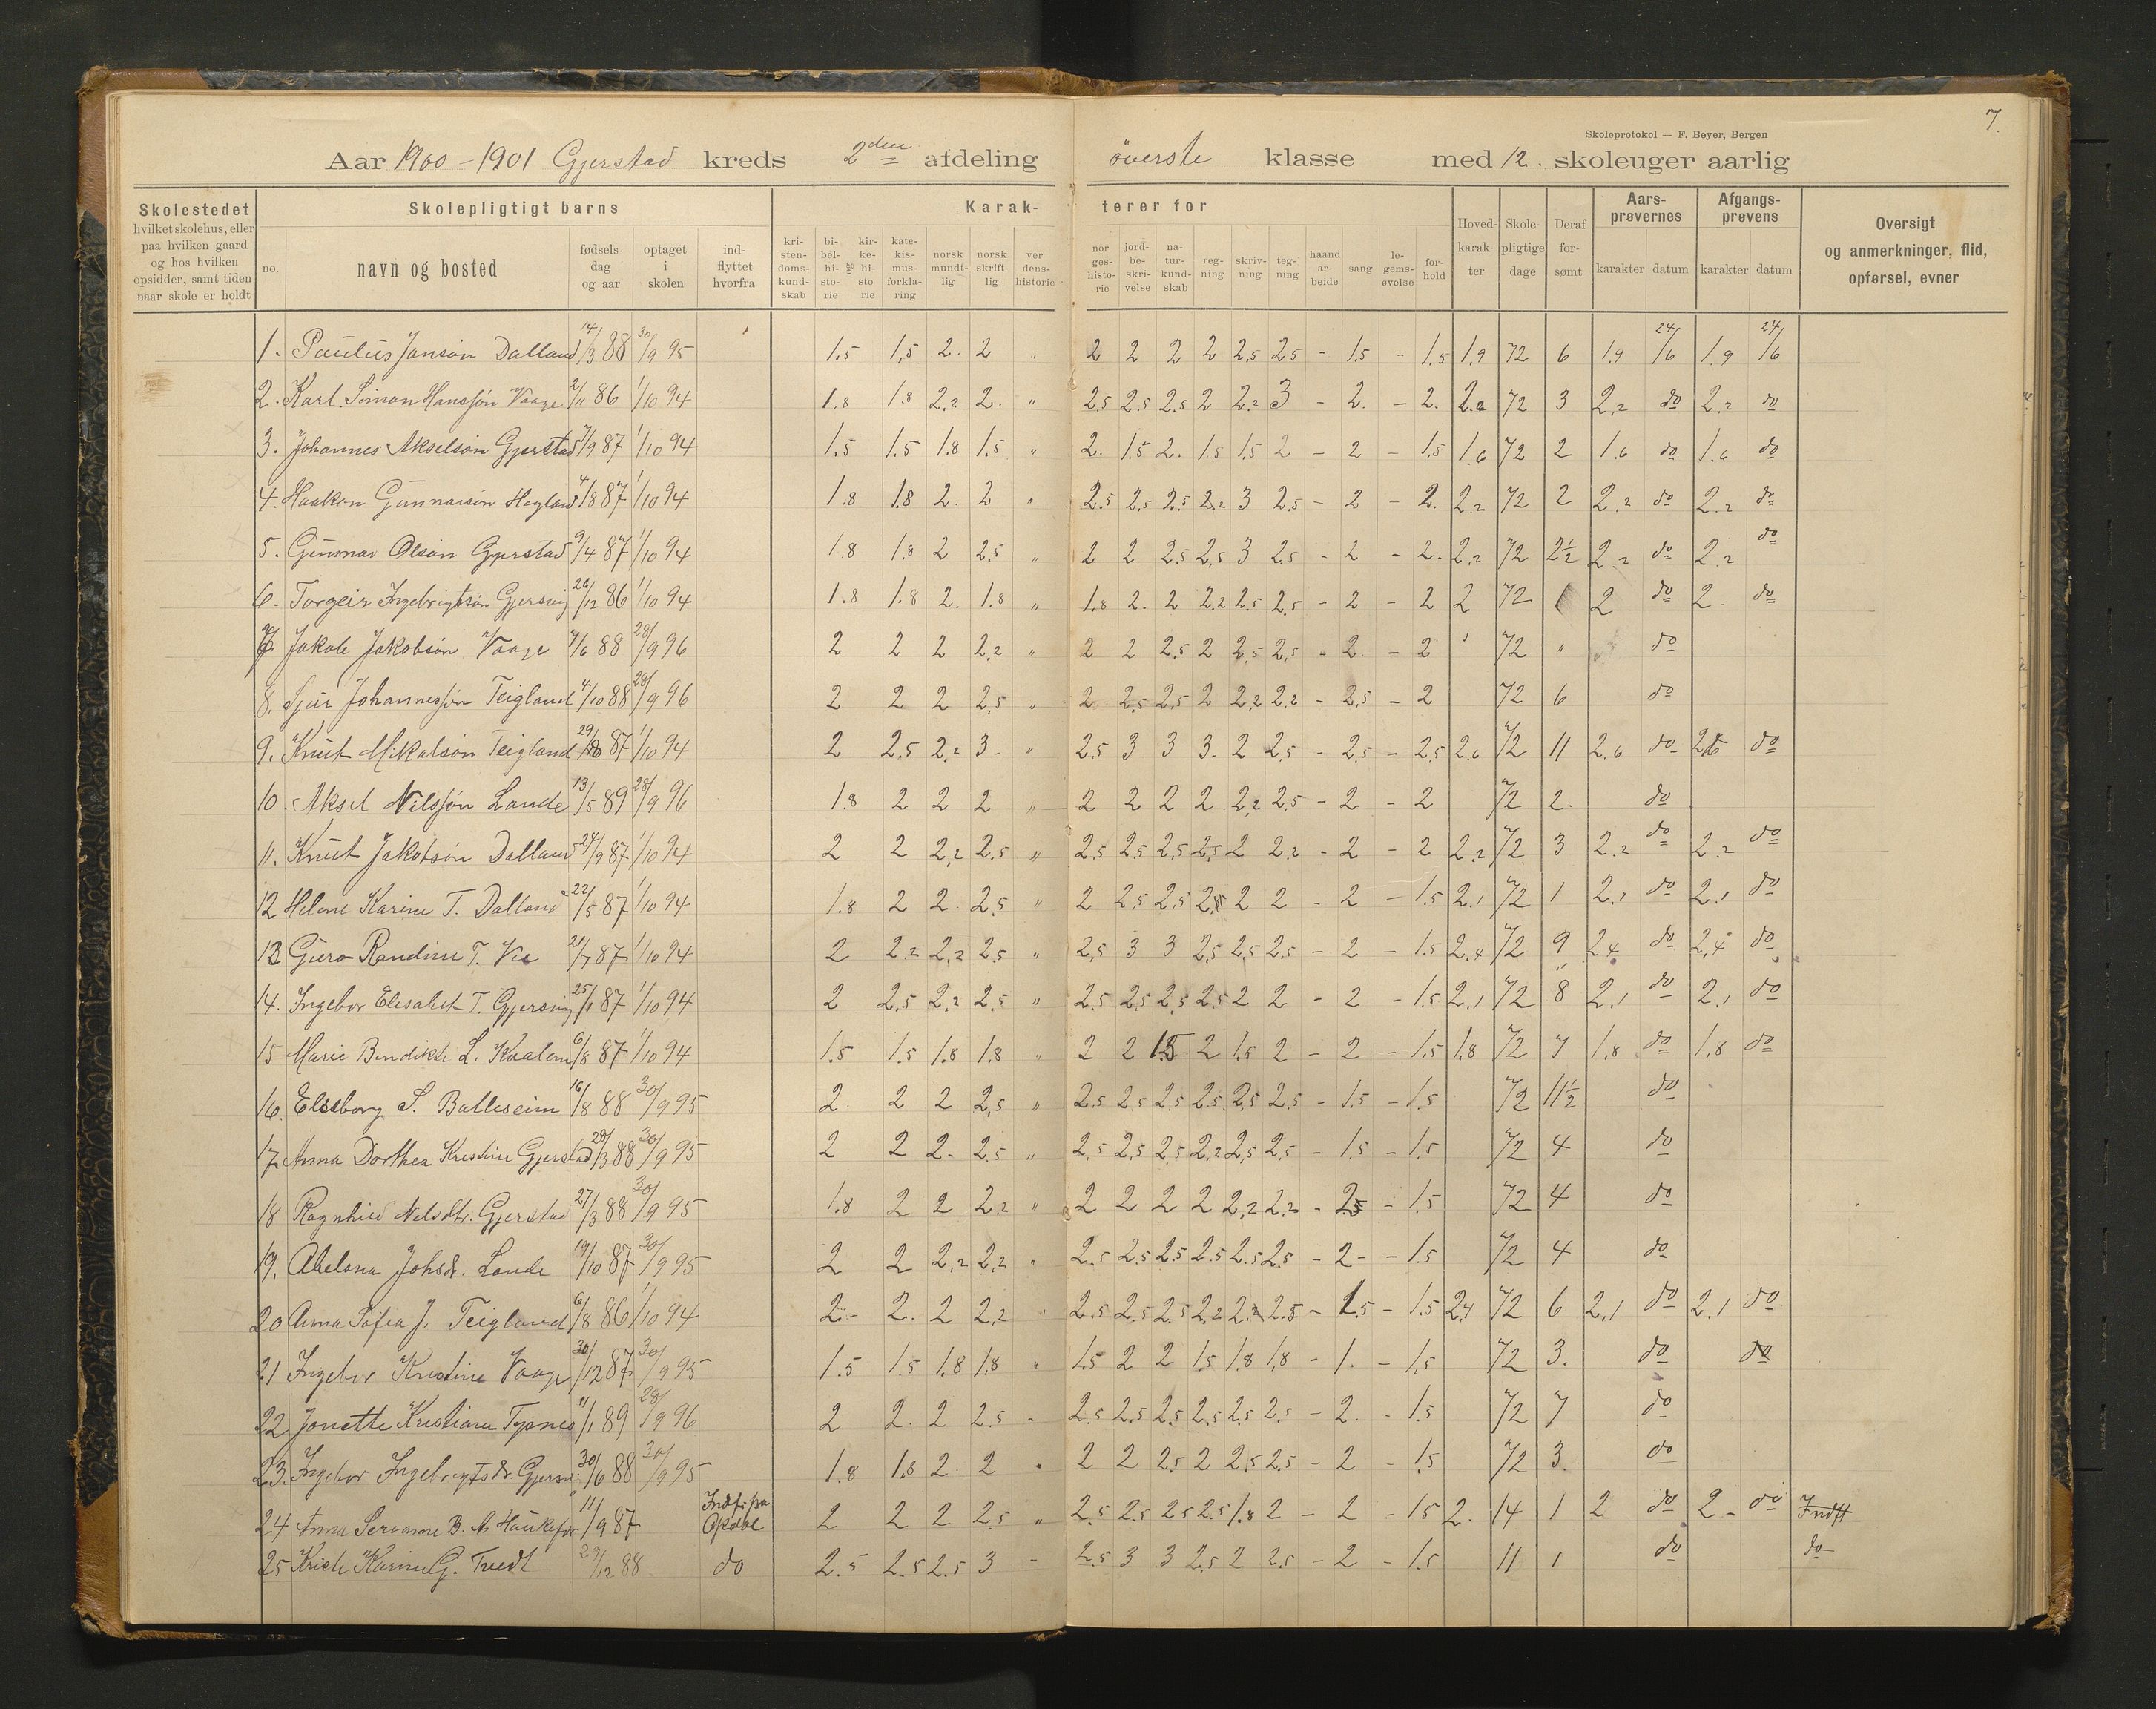 7.
Skoleprotokol — F. Beyer, Bergen
Aar 1900-1901 Gjerstad kreds 2den afdeling øverste klasse med 12. skoleuger aarlig
Skolestedet hvilket skolehus, eller paa hvilken gaard og hos hvilken opsidder, samt tiden naar skole er holdt
Skolepligtigt barns
no. navn og bosted fødsels- dag og aar optaget i skolen ind- flyttet hvorfra
Karak- terer for
kri- sten- doms- kund- skab bi- bel- hi- sto- rie kir- ke- hi- sto rie kate- kis- mus- forkla- ring norsk mundt- lig norsk skrift- lig ver dens- historie nor ges- histo- rie jord- be- skri- velse na- tur- kund- skab reg- ning skriv- ning teg- ning haand ar- beide sang le- gems- øvelse for- hold
Hoved- karak- ter Skole- pligtige dage Deraf for- sømt
Aars- prøvernes karakter datum
Afgangs- prøvens karakter datum
Oversigt og anmerkninger, flid, opførsel, evner
1. Paulus Janson Dalland 14/3 88 30/9 95 1.5 1,5 2. 2 " 2 2 2 2 2,5 2,5 - 1.5 - 1.5 1.9 72 6 1.9 24/6 1.9 24/6
2. Karl. Simon Hansson Vaage 2/11 86 1/10 94 1.8 1.8 2,2 2. " 2,5 2,5 2,5 2 2,2 3 - 2. - 2. 2.2 72 3 2.2 do 2.2 do
3. Johannes Akselson Gjerstad 7/9 87 1/10 94 1.5 1.5 1.8 1.5 " 2. 1.5 2. 1.5 1.5 2 - 2 - 1,5 1.6 72 2 1.6 do 1.6 do
4. Haakon Gunnarson Hegland 4/8 87 1/10 94 1.8 1.8 2. 2 " 2.5 2,5 2,5 2,2 3 2,5 - 2 - 2. 2.2 72 2 2.2 do 2.2 do
5. Gunnar Olson Gjerstad 9/4 87 1/10 94 1.8 1.8 2 2,5 " 2 2 2,5 2,5 3 2,5 - 2 - 2. 2.2 72 2½ 2.2 do 2.2 do
6. Torgeir Ingebrigtson Gjersvig 26/12 86 1/10 94 1.8 1.8 2. 1.8 " 1.8 2. 2 2,2 2,5 2,5 - 2 - 2 2 72 1 2 do 2. do
7. Jakob Jakobson Vaage 7/6 88 28/9 96 2 2 2 2,2 " 2 2 2,5 2 2,5 2,5 - 2 - 2 72 " do
8. Sjur Johannesson Teigland 4/10 88 28/9 96 2 2 2 2,5 " 2 2,5 2,5 2 2,2 2,2 - 2,5 - 2 72 6 do
9. Knut Mikalson Teigland 29/8 87 1/10 94 2 2.5 2,2 3 " 2.5 3 3 3 2 2,5 - 2.5 - 2,5 2.6 72 11 2.6 do 2.6 do
10. Aksel Nilsson Lande 13/5 89 28/9 96 1.8 2 2 2 " 2 2 2 2 2,2 2,5 - 2 - 2 72 2. do
11. Knut Jakobson Dalland 24/9 87 1/10 94 2 2 2,2 2.5 " 2,5 2,5 2,5 2,5 2 2.2 - 2 - 2 2.2 72 3 2.2 do 2.2 do
12 Helene Karine T. Dalland 22/5 87 1/10 94 1.8 2 2 2,5 " 2 2,5 2,5 2,5 2 2 - 2 - 1.5 2.1 72 1 2.1 do 2.1 do
13 Guro Randine T. Vie 21/7 87 1/10 94 2 2.2 2,2 2.5 " 2,5 3 3 2,5 2,5 2.5 - 2 - 1.5 2.4 72 9 2.4 do 2,4 do
14. Ingebor Elisabet T. Gjersvig 25/1 87 1/10 94 2 2,5 2,2 2,5 " 2,5 2,5 2,5 2.5 2 2 - 2 - 1.5 2.1 72 8 2.1 do 2.1 do
15 Marie Bendikte L. Kvalem 6/8 87 1/10 94 1.5 1.5 1.8 1.8 " 2 2 1.5 2 1.5 2 - 2 - 1.5 1.8 72 7 1.8 do 1.8 do
16. Elseborg S. Balleseim 16/8 88 30/9 95 2. 2 2 2,5 " 2,5 2,5 2,5 2.5 2,5 2,5 - 1.5 - 1.5 72 11½ do
17. Anna Dorthea Kristine Gjerstad 28/3 88 30/9 95 2 2 2. 2.5 " 2,5 2,5 2,5 2,2 2,5 2,5 - 1.5 - 1.5 72 4 do
18 Ragnhild Nilsdtr. Gjerstad 27/3 88 30/9 95 1.8 2 2 2,2 " 2 2 2 2 2,2 2,2 - 2,5 - 1.5 72 4 do
19. Abelona Johsdr. Lande 19/10 87 30/9 95 2 2 2,2 2,2 " 2,5 2,5 2,5 2,5 2,5 2,5 - 2 - 1.5 72 4 do
20 Anna Sofia J. Teigland 6/8 86 1/10 94 2 2. 2 2,2 " 2,5 2,5 2,5 2,2 2,2 2.5 - 1.5 - 1.5 2.1 72 6 2.1 do 2.1 do
21 Ingebor Kristine Vaage 30/12 87 30/9 95 1.5 1.5 1.8 1.8 " 1.5 2 2 1.5 1.8 1,8 - 1. - 1.5 72 3. do do
22 Jonette Kristiane Typnes 11/1 89 28/9 96 2 2. 2 2.5 " 2.5 2,5 2,5 2,5 2,5 2,5 - 2. - 1.5 72 7 do
23. Ingebor Ingebrigtsdr. Gjersv. 30/6 88 30/9 95 1.8 1.8 2. 2 " 2 2 2,5 2 2,5 2,5 - 2 - 1.5 72 3. do
24 Anna B. A. 11/9 87 Indfl. fra Opdal 2 2 2 2.5 " 2.5 2,5 2,5 2.5 1.8 2 - 2 - 1.5 2. 14 1 2 do 2. do Indfl
25 Karine G. Tvedt 29/12 88 do 2.5 2.5 2.5 3 - 2.5 3 3 2,5 2 2.5 - 2 - 1.5 11 1 do do